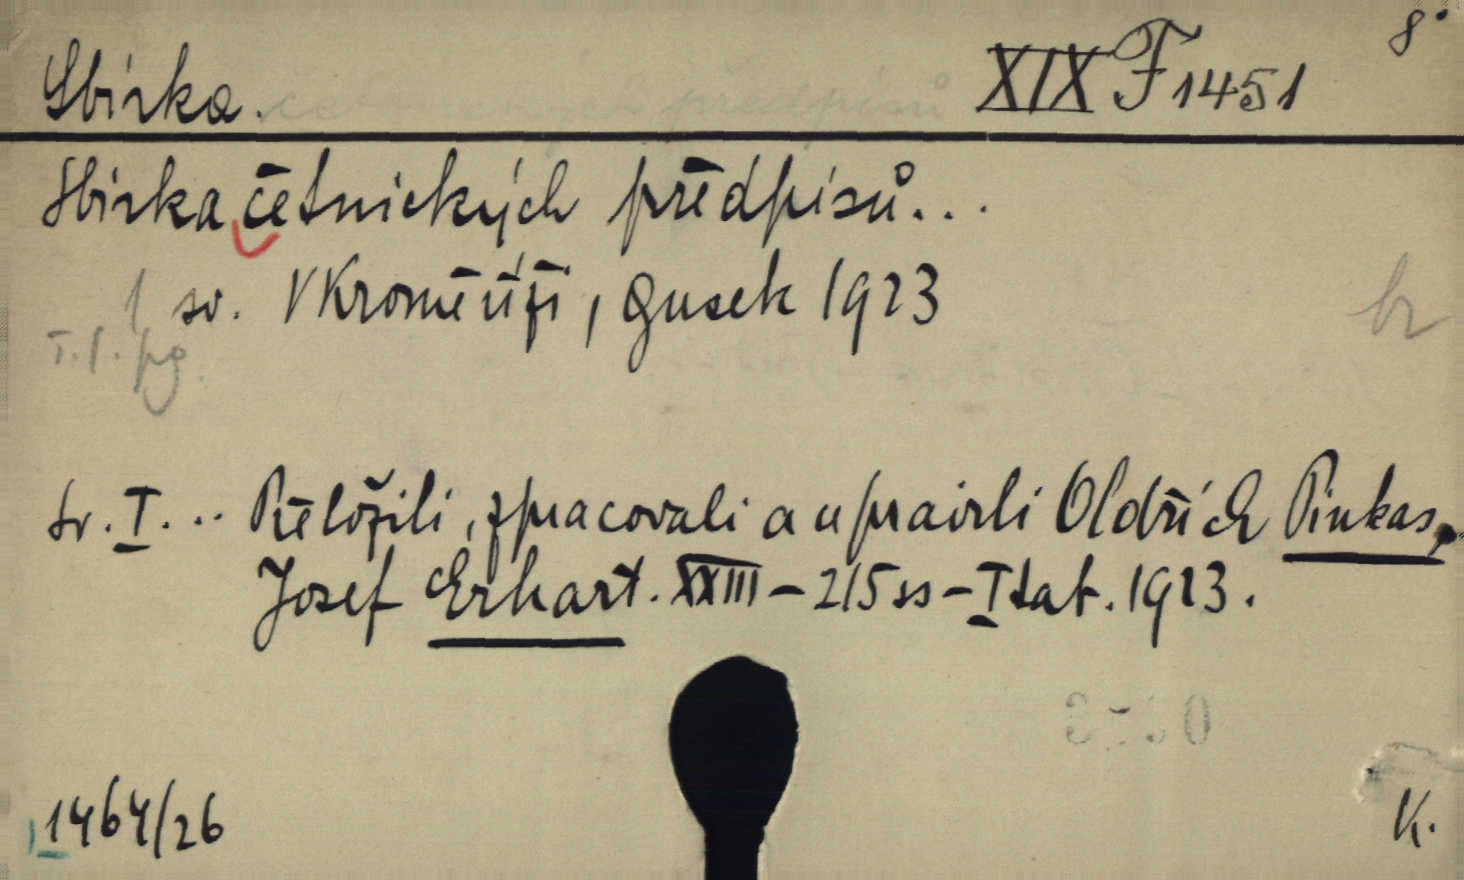 Sbírka. XIX F 1451 8°
Sbírka četnických předpisů...
1 sv. V Kroměříži, Gusek 1923
T. I. pg. br
Sv. I... Přeložili, zpracovali a upravili Oldřich Pinkas,
Josef Erhart. XXIII - 215 ss - I tab. 1923.
1464/26 K.